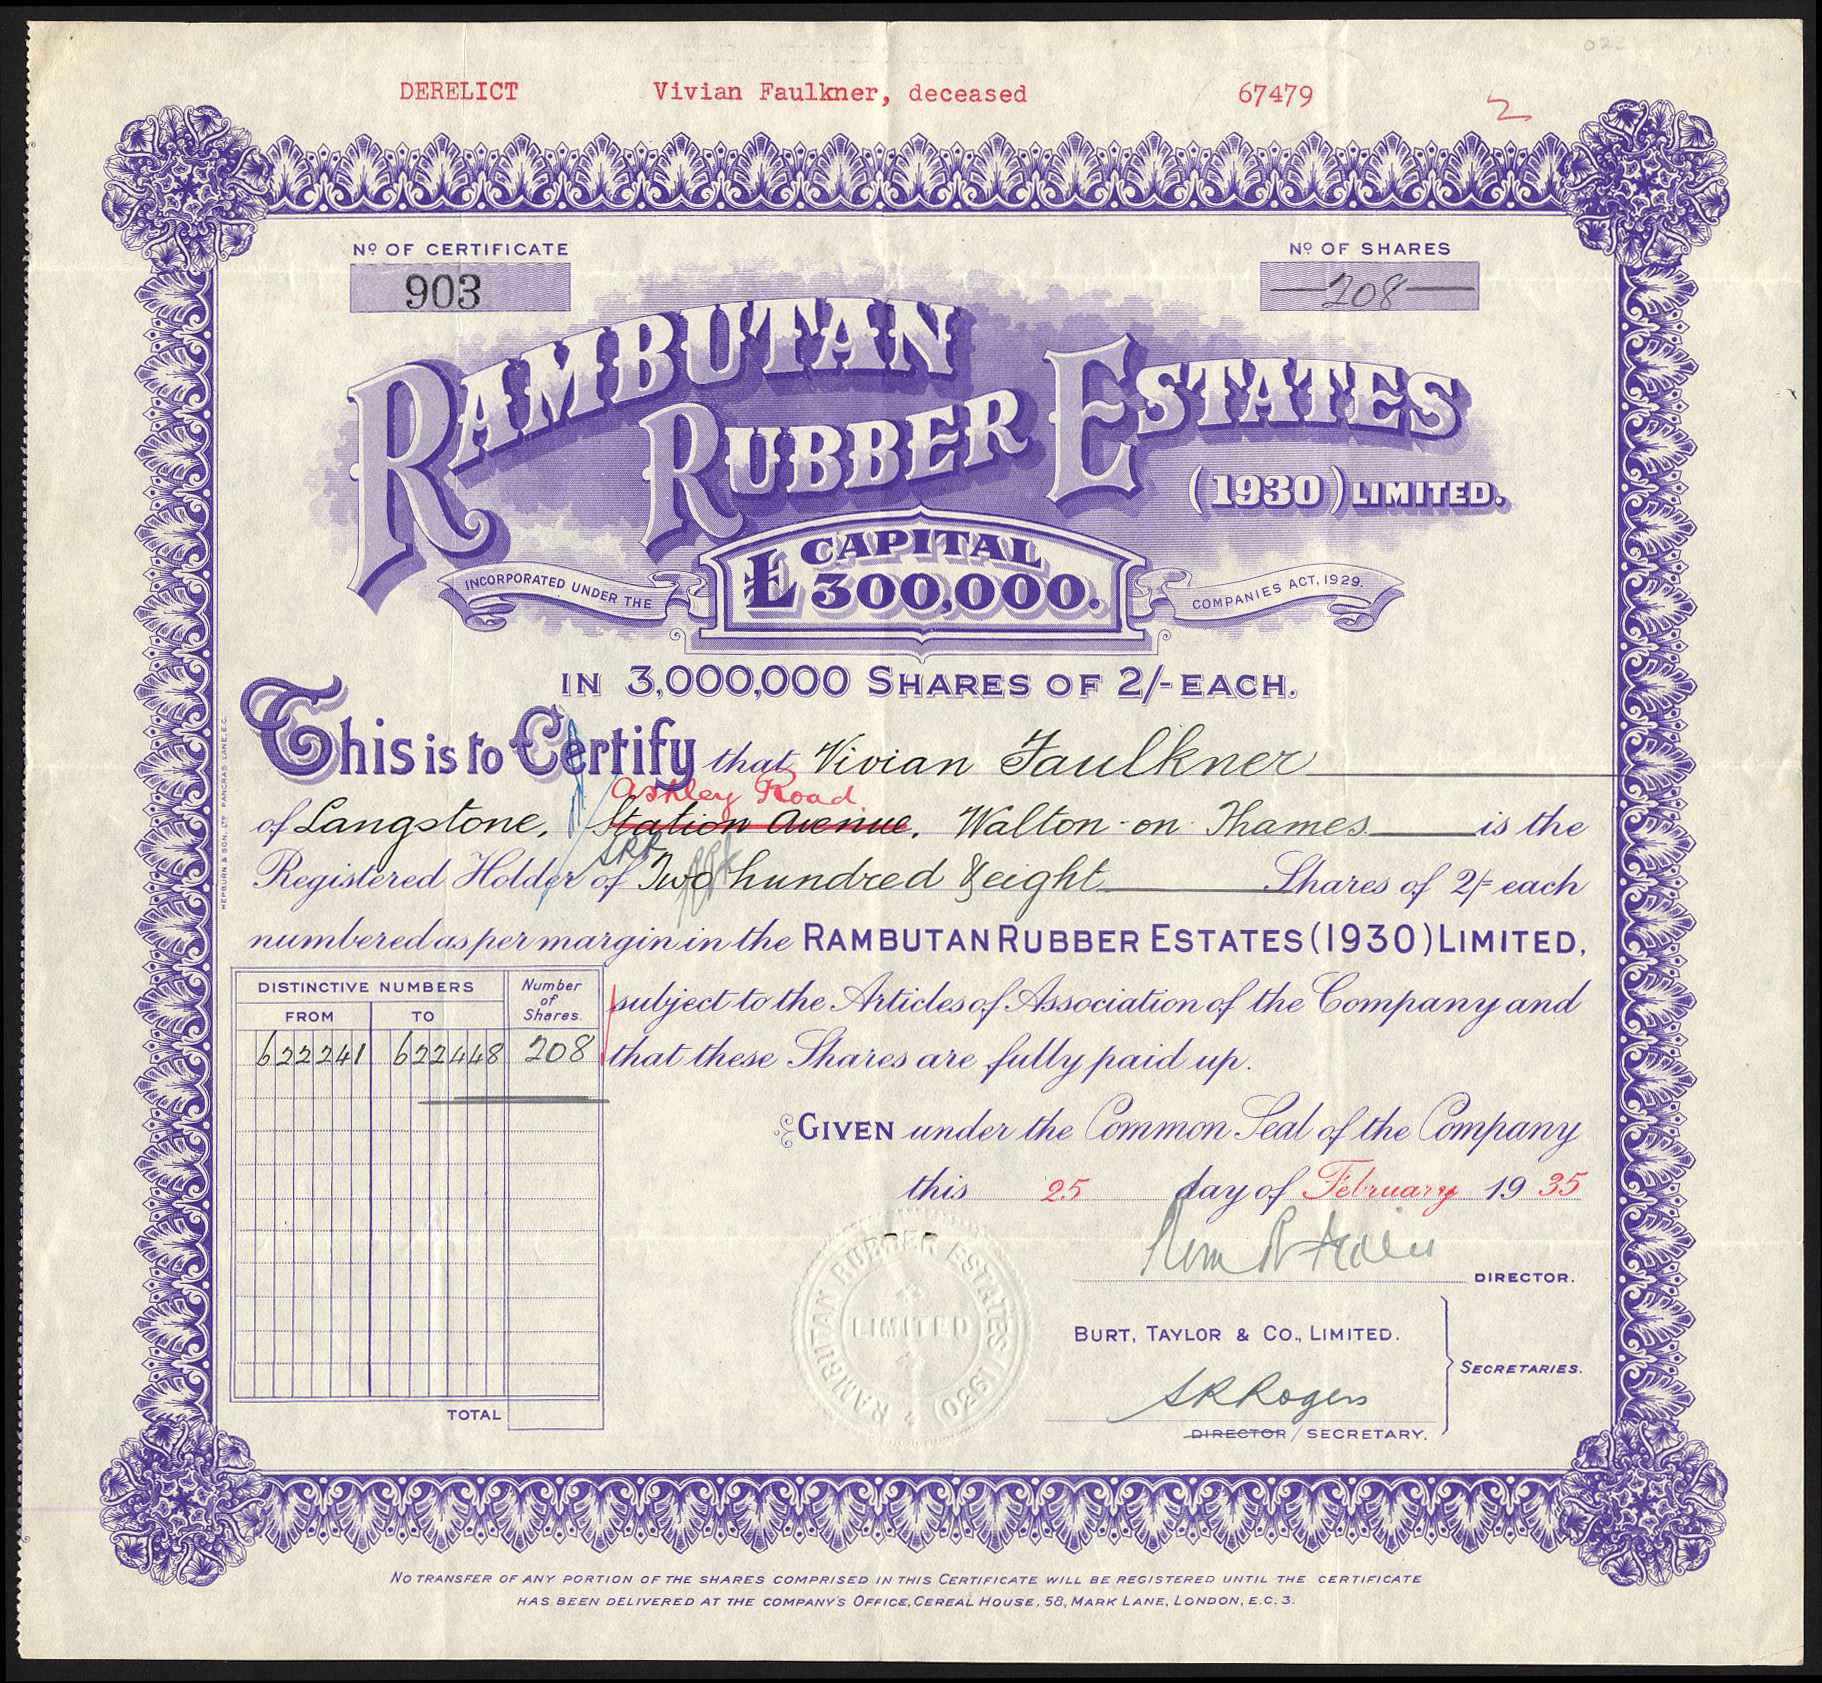 DERELICT Vivian Faulkner, deceased 67479 2
Nº OF CERTIFICATE
903
Nº OF SHARES
208
RAMBUTAN
RUBBER ESTATES
(1930) LIMITED.
CAPITAL
£300,000.
INCORPORATED UNDER THE COMPANIES ACT, 1929.
IN 3,000,000 SHARES OF 2/- EACH.
This is to Certify that Vivian Faulkner
Ashley Road
of Langstone, Station Avenue, Walton-on-Thames is the
SRR
Registered Holder of Two hundred & eight Shares of 2/= each
numbered as per margin in the RAMBUTAN RUBBER ESTATES (1930) LIMITED,
subject to the Articles of Association of the Company and
that these Shares are fully paid up.
DISTINCTIVE NUMBERS Number of Shares.
FROM TO
622241 622448 208
TOTAL
GIVEN under the Common Seal of the Company
this 25 day of February 1935
DIRECTOR.
BURT, TAYLOR & CO., LIMITED.
SECRETARIES.
SRRogers
DIRECTOR / SECRETARY.
RAMBUTAN RUBBER ESTATES (1930)
LIMITED
HEPBURN & SON, LTD PANCRAS LANE, E.C.
NO TRANSFER OF ANY PORTION OF THE SHARES COMPRISED IN THIS CERTIFICATE WILL BE REGISTERED UNTIL THE CERTIFICATE
HAS BEEN DELIVERED AT THE COMPANY'S OFFICE, CEREAL HOUSE, 58, MARK LANE, LONDON, E.C. 3.